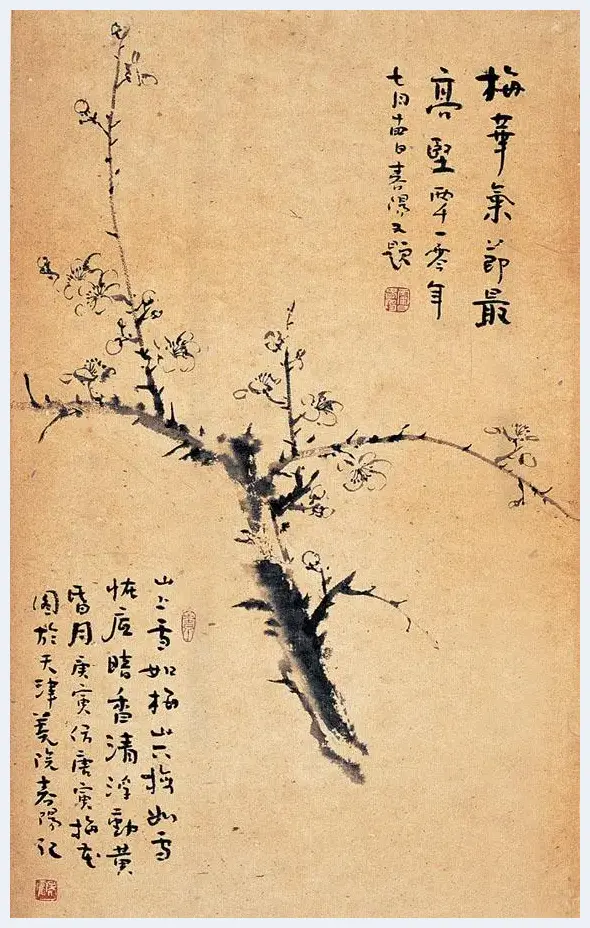 梅華氣節最
高堅兩千一零年
七月十四日春陽又題
山上雪如梅山下梅如雪
恍暗香清浮動黃
昏月庚寅仿唐寅梅花
圖於天津美院春陽記